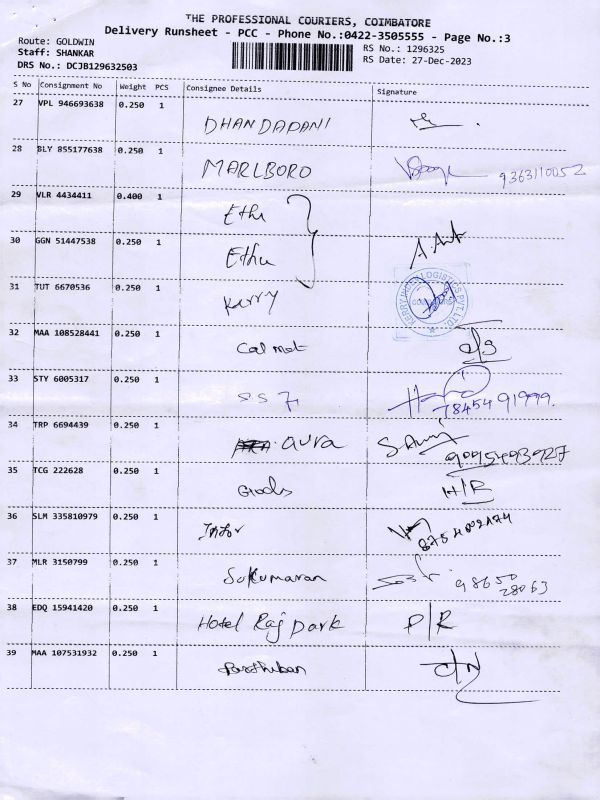 THE PROFESSIONAL COURIERS, COIMBATORE
Delivery Runsheet - PCC - Phone No.:0422-3505555 - Page No.:3
Route: GOLDWIN
Staff: SHANKAR
DRS No.: DCJB129632503
RS No.: 1296325
RS Date: 27-Dec-2023
S No Consignment No Weight PCS Consignee Details Signature
27 VPL 946693638 0.250 1 DHANDAPANI
28 BLY 855177638 0.250 1 MARLBORO 9363110052
29 VLR 4434411 0.400 1 Ethu
30 GGN 51447538 0.250 1 Ethu
31 TUT 6670536 0.250 1 Kerry
32 MAA 108528441 0.250 1 Cal met
33 STY 6005317 0.250 1 SS7 7845491999.
34 TRP 6694439 0.250 1 aura
35 TCG 222628 0.250 1 H/R
36 SLM 335810979 0.250 1
37 MLR 3150799 0.250 1 Sukumaran 98650
28063
38 EDQ 15941420 0.250 1 Hotel Raj park P/R
39 MAA 107531932 0.250 1 Parthiban